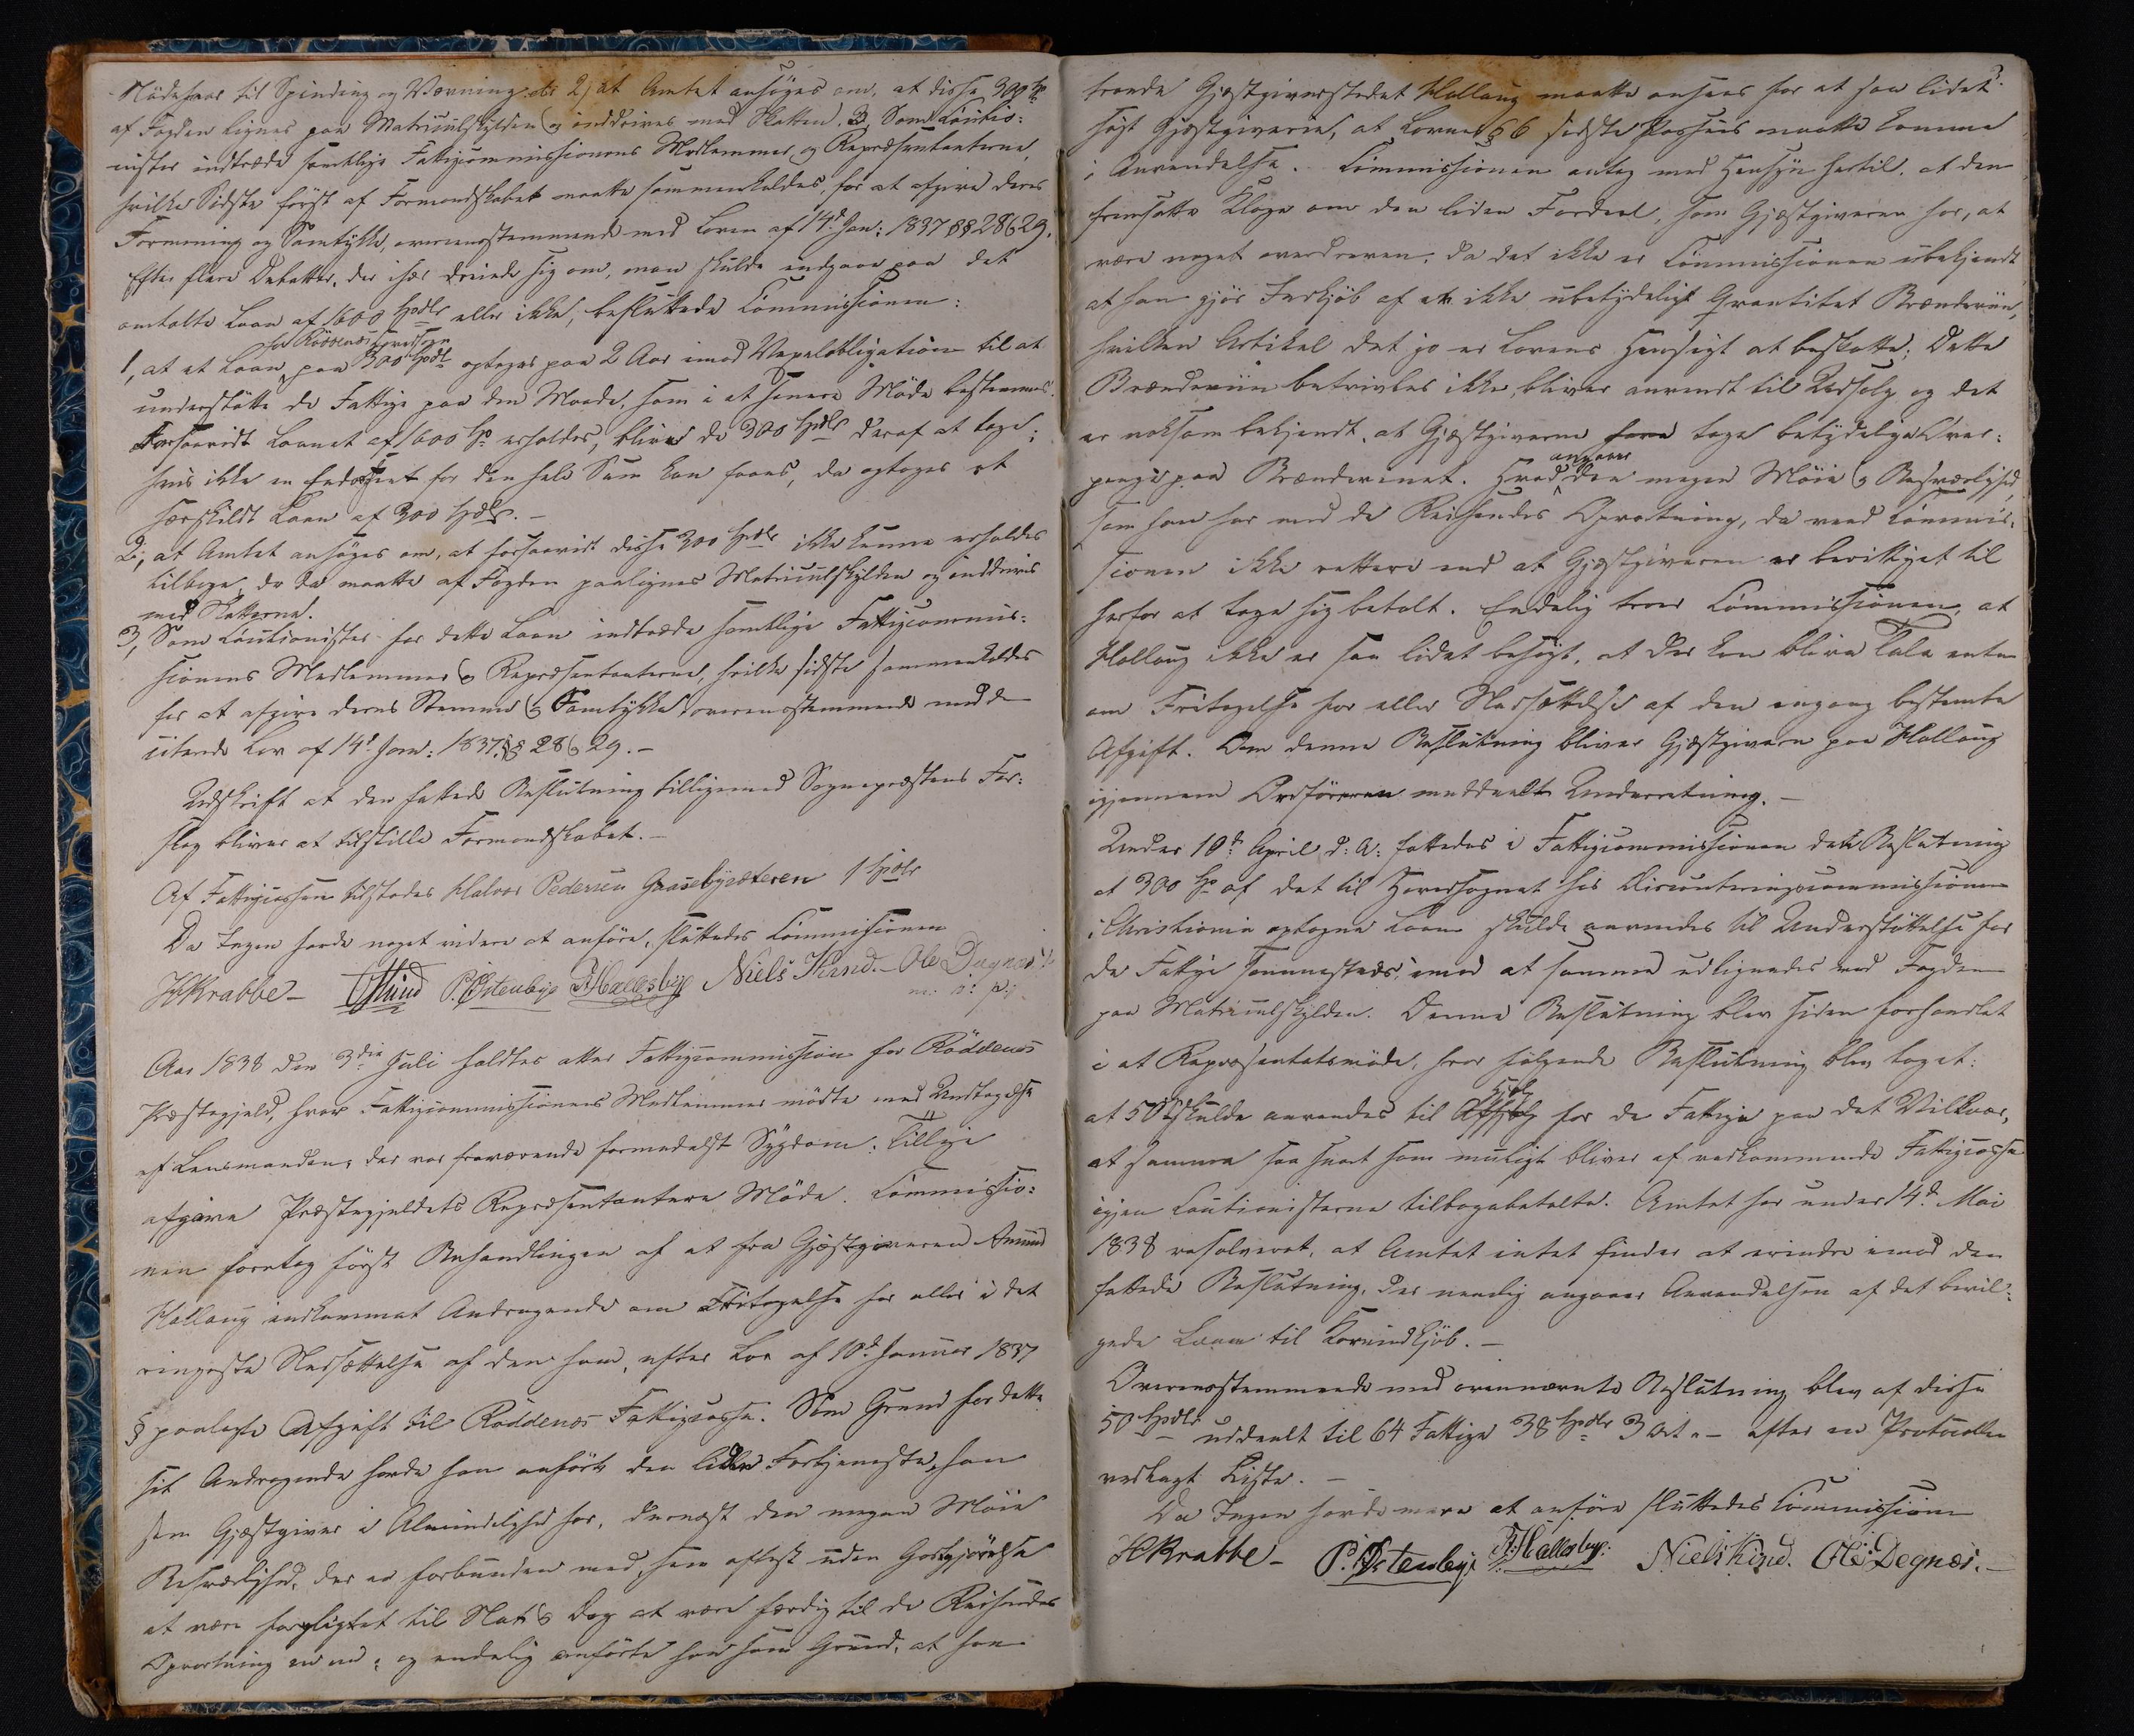 Nödehaar til Spinding og Vævning etc 2, at Amtet ansöges om, at disse 300 Sp
af Fogden lignes paa Matriculskylden og inddrives med Skatten. 3, Som Cautio-
nister indtræde samtlige Fattigcommissionens Medlemmer og Repræsentanterne,
hvilke Sidste först af Formandskabet maatte sammenkaldes, for at afgive deres
Formening og Samtykke, overeensstemmende med Loven af 14d Jan: 1837 §§ 28 & 29.
Efter flere Debatter, der især dreiede sig om, man skulde indgaae paa det
omtalte Laan af 1600 Spdlr eller ikke, besluttede Commissionen:
for Röddenæs Præstegj
1, at et Laan paa 300 Spdl optages paa 2 Aar imod Vexelobligation til at
understötte de Fattige paa den Maade, som i et senere Möde bestemmes.
Forsaavidt Laanet af 1600 Sp erholdes, bliver de 300 Spdlr deraf at tage;
hvis ikke en Endossent for den hele Sum kan faaes, da optages et
særskildt Laan af 300 Spdlr. -
2, at Amtet ansöges om, at forsaavidt disse 300 Spdlr ikke kunne erholdes
tilbage, de da maatte af Fogden paalignes Matriculskylden og inddrives
med Skatterne.
3, Som Cautionister for dette Laan indtræde samtlige Fattigcommis-
sionens Medlemmer og Repræsentanterne, hvilke sidste sammenkaldes
for at afgive deres Stemme & Samtykke overeensstemmende med den
citerede Lov af 14d Jan: 1837 §§ 28 & 29. -
Udskrift at den fattede Beslutning tilligemed Sognepræstens For-
slag bliver at tilstille Formandskabet. -
Af Fattigcassen tilstodes Halvor Pedersen Gaasebysæteren 1 Spdlr
Da Ingen havde noget videre at anföre, sluttedes Commissionen
HKrabbe - OLund P. Östenbye Hallesbye Niels Kind. - Ole Degnæs
m. p. p.
Aar 1838 den 3die Juli holdtes atter Fattigcommission for Röddenæs
Præstegjeld, hvor Fattigcommissionens Medlemmer mödte med Undtagelse
af Lensmanden, der var fraværende formedelst Sygdom. Tillige
afgave Præstegjeldets Repræsentantere Möde. Commissio-
nen foretog först Behandlingen af et fra Gjæstgiveren Amund
Hallang indkommet Andragende om Fritagelse for eller i det
ringeste Nedsættelse af den ham, efter Lov af 10d Januar 1837
§ paalagte Afgift til Röddenæs Fattigcasse. Som Grund for dette
sit Andragende havde han anfört den lidle Fortjeneste, han
som Gjæstgiver i Almindelighed har, dernæst den megen Möie
Besværlighed, der er forbunden med, som oftest uden Godtgjörelse
at være forpligtet til Nat & Dag at være færdig til de Reisendes
Opvartning, og endelig anförte han som Grund, at han
troede Gjæstgiverstedet Hallang maatte ansees for et saa lidet
sögt Gjæstgiverie, at Lovens § 6 sidste Passus maatte komme
i Anvendelse. Commissionen antog med Hensyn hertil, at den
fremsatte Klage om den liden Fordeel, som Gjæstgiveren har, at
være noget overdreven, da det ikke er Commissionen ubekjendt
at han gjör Indkjöb af en ikke ubetydeligt Qvantitet Brændeviin,
hvilken Artikel det jo er Lovens Hensigt at beskatte; Dette
Brændeviin betvivles ikke, bliver anvendt til Udsalg og det
er noksom bekjendt, at Gjæstgiverne tage betydelige Over-
angaaer
penge paa Brændevinet. Hvad den megen Möie & Besværlighed,
som han har med de Reisendes Opvartning, da veed Commis-
sionen ikke rettere end at Gjæstgiveren er berettiget til
herfor at tage sig betalt. Endelig troer Commissionen, at
Hallang ikke er saa lidet besögt, at der kan blive Tale enten
om Fritagelse for eller Nedsættelse af den engang bestemte
Afgift. Om denne Beslutning bliver Gjæstgiveren paa Hallang
igjennem Ordföreren meddeelt Underretning. -
Under 10d April d: A: fattedes i Fattigcommissionen dete Beslutning
at 300 Sp af det til Hovedsognet hos Disconteringscommissionen
i Christiania optagne Laan skulde anvendes til Understöttelse for
de Fattige sammesteds, imod at samme udlignedes ved Fogden
paa Matriculskylden. Denne Beslutning blev siden forhandlet
i et Repræsentatsmöde, hvor fölgende Beslutning blev taget:
Hjelp
at 50 Sp skulde anvendes til for de Fattige paa det Vilkaar,
at samme saa snart som muligt bliver af vedkommende Fattigcasse
igjen Cautionisterne tilbagebetalte. Amtet har under 14d Mai
1838 resolveret, at Amtet intet finder at erindre imod den
fattede Beslutning, der nemlig angaaer Anvendelsen af det bevil-
gede Laan til Kornindkjöb. -
Overeensstemmende med ovennævnte Beslutning blev af disse
50 Spdlr uddeelt til 64 Fattige 38 Spdlr 3 Ort - efter en Protocollen
vedlagt Liste. -
Da Ingen havde mere at anföre sluttedes Commissionen
HKrabbe - P. Östenbye Hallesbye: Niels Kind. Ole Degnæs. -